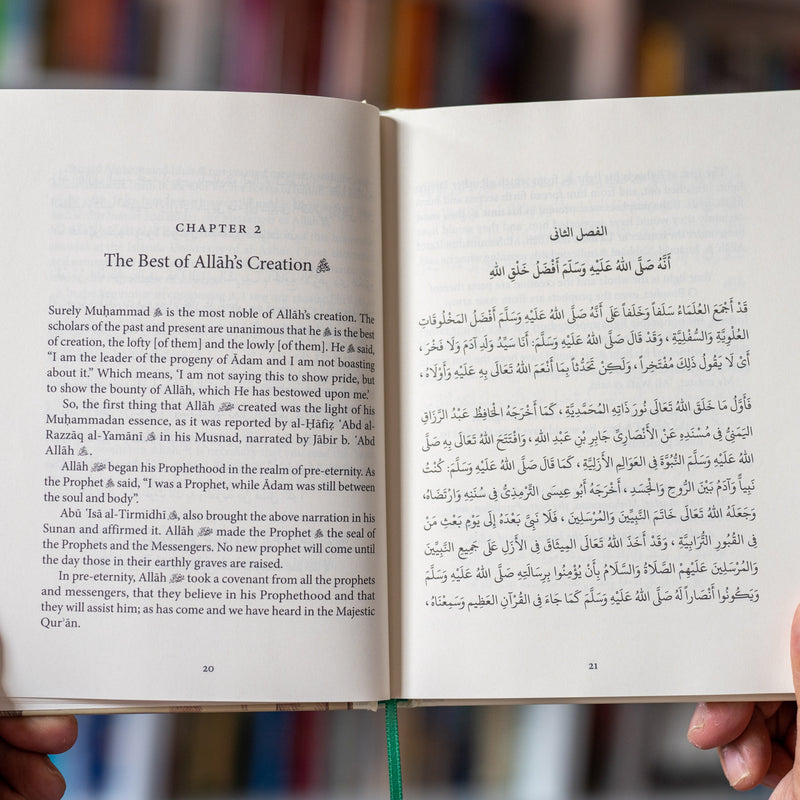 CHAPTER 2
The Best of Allāh's Creation ﷺ
Surely Muḥammad ﷺ is the most noble of Allāh's creation. The
scholars of the past and present are unanimous that he ﷺ is the best
of creation, the lofty [of them] and the lowly [of them]. He ﷺ said,
“I am the leader of the progeny of Ādam and I am not boasting
about it.” Which means, ‘I am not saying this to show pride, but
to show the bounty of Allāh, which He has bestowed upon me.’
So, the first thing that Allāh created was the light of his
Muḥammadan essence, as it was reported by al-Ḥāfiẓ ʿAbd al-
Razzāq al-Yamānī in his Musnad, narrated by Jābir b. ʿAbd
Allāh .
Allāh began his Prophethood in the realm of pre-eternity. As
the Prophet ﷺ said, “I was a Prophet, while Ādam was still between
the soul and body”.
Abū ʿIsā al-Tirmidhī , also brought the above narration in his
Sunan and affirmed it. Allāh made the Prophet ﷺ the seal of
the Prophets and the Messengers. No new prophet will come until
the day those in their earthly graves are raised.
In pre-eternity, Allāh took a covenant from all the prophets
and messengers, that they believe in his Prophethood and that
they will assist him; as has come and we have heard in the Majestic
Qurʾān.
20
الفصل الثانى
أَنَّهُ صَلَّى اللهُ عَلَيْهِ وَسَلَّمَ أَفْضَلُ خَلْقِ اللهِ
قَدْ أَجْمَعَ العُلَمَاءُ سَلَفاً وَخَلَفاً عَلَى أَنَّهُ صَلَّى اللهُ عَلَيْهِ وَسَلَّمَ أَفْضَلُ المَخْلُوقَاتِ
العُلْوِيَّةِ وَالسُّفْلِيَّةِ ، وَقَدْ قَالَ صَلَّى اللهُ عَلَيْهِ وَسَلَّمَ: أَنَا سَيِّدُ وَلَدِ آدَمَ وَلَا فَخْرَ ،
أَىْ لَا يَقُولُ ذَلِكَ مُفْتَخِراً ، وَلَكِنْ تَحَدُّثاً بِمَا أَنْعَمَ اللهُ تَعَالَى بِهِ عَلَيْهِ وَأَوْلَاهُ ،
فَأَوَّلُ مَا خَلَقَ اللهُ تَعَالَى نُورَ ذَاتِهِ المُحَمَّدِيَّةِ ، كَمَا أَخْرَجَهُ الحَافِظُ عَبْدُ الرَّزَّاقِ
اليَمَنِىُّ فِى مُسْنَدِهِ عَنْ الأَنْصَارِىِّ جَابِرِ بْنِ عَبْدِ اللهِ ، وَافْتَتَحَ اللهُ تَعَالَى بِهِ صَلَّى
اللهُ عَلَيْهِ وَسَلَّمَ النُّبُوَّةَ فِى العَوَالِمِ الأَزَلِيَّةِ ، كَمَا قَالَ صَلَّى اللهُ عَلَيْهِ وَسَلَّمَ: كُنْتُ
نَبِياًّ وَآدَمُ بَيْنَ الرُّوحِ وَالْجَسَدِ ، أَخْرَجَهُ أَبُو عِيسَى التِّرْمِذِىُّ فِى سُنَنِهِ وَارْتَضَاهُ،
وَجَعَلَهُ اللهُ تَعَالَى خَاتَمَ النَّبِيِّينَ وَالمُرْسَلِينَ ، فَلَا نَبِىَّ بَعْدَهُ إِلَى يَوْمِ بَعْثِ مَنْ
فِى القُبُورِ التُّرَابِيَّةِ ، وَقَدْ أَخَذَ اللهُ تَعَالَى المِيثَاقَ فِى الأَزَلِ عَلَى جَمِيعِ النَّبِيِّينَ
وَالمُرْسَلِينَ عَلَيْهِمْ الصَّلَاةُ وَالسَّلَامُ بِأَنْ يُؤْمِنُوا بِرِسَالَتِهِ صَلَّى اللهُ عَلَيْهِ وَسَلَّمَ
وَيَكُونُوا أَنْصَاراً لَهُ صَلَّى اللهُ عَلَيْهِ وَسَلَّمَ كَمَا جَاءَ فِى القُرْآنِ العَظِيمِ وَسَمِعْنَاهُ ،
21